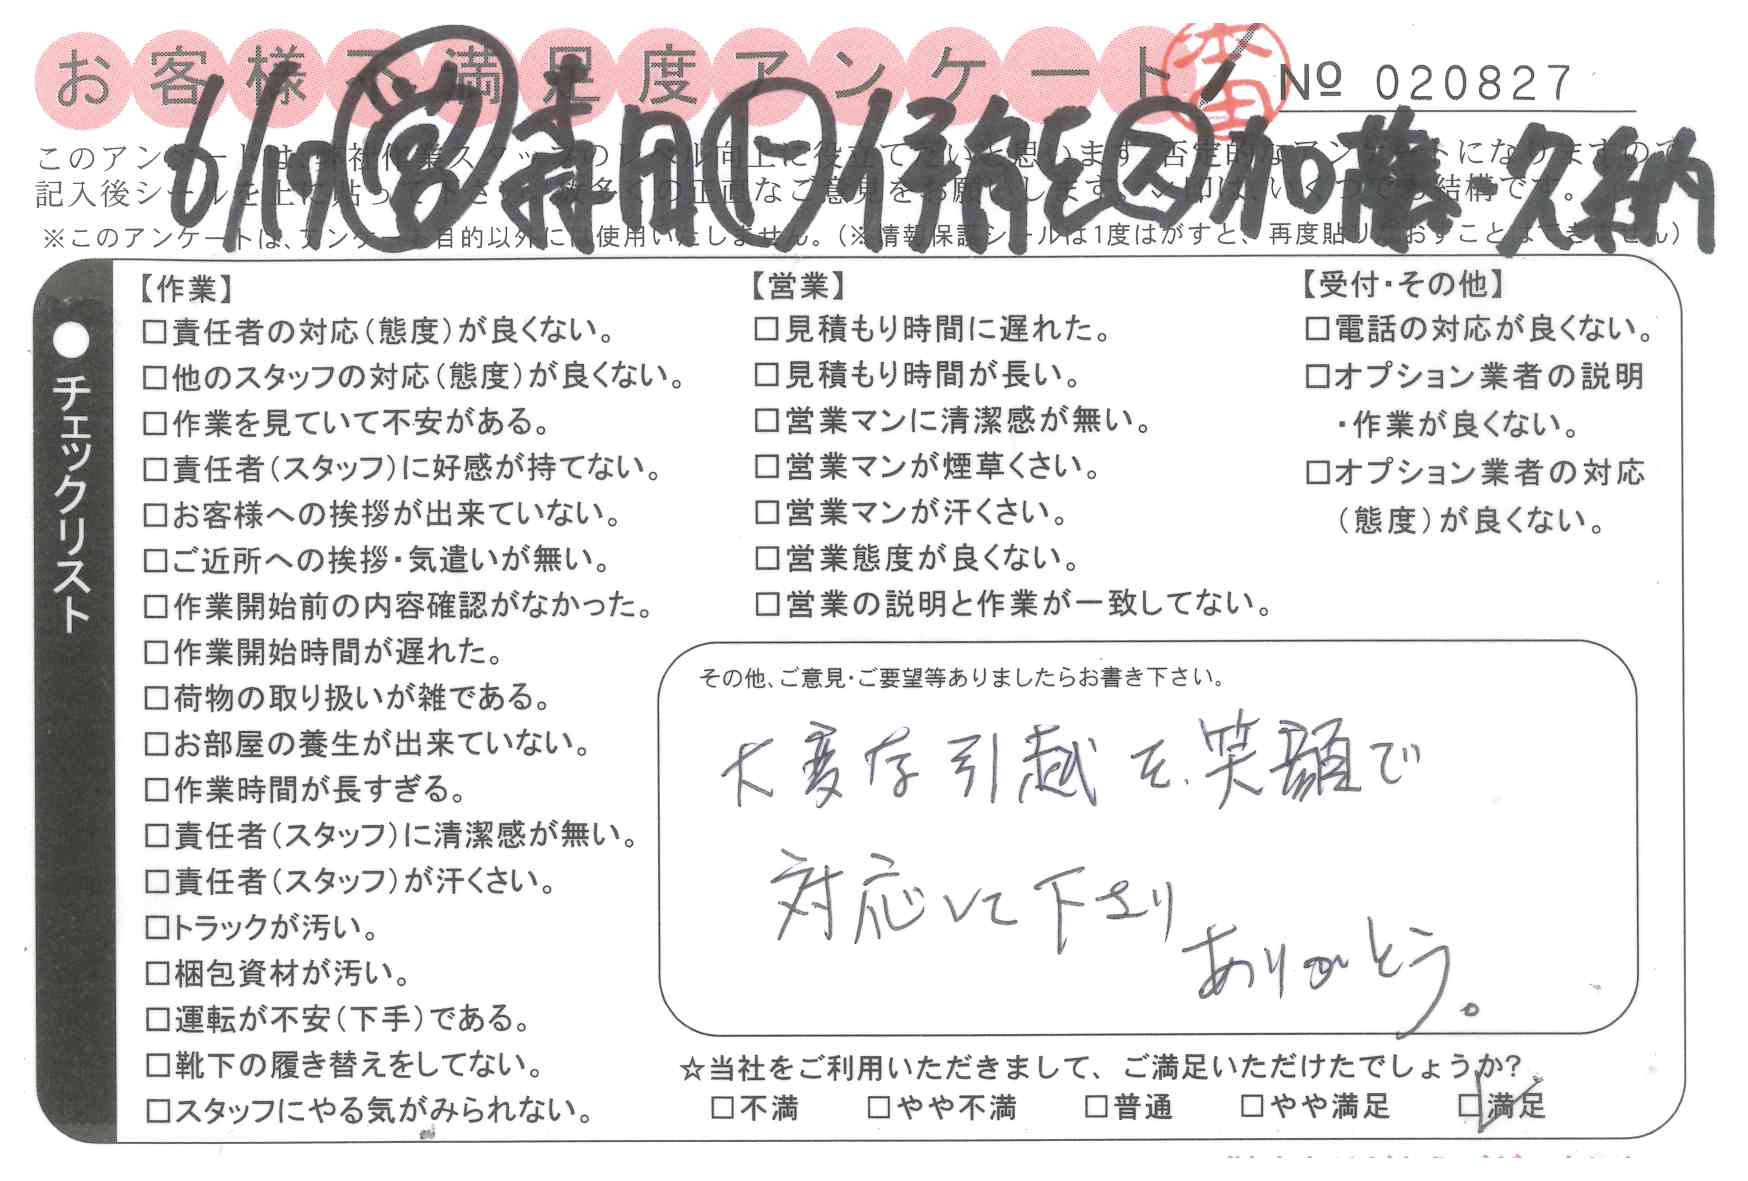 お客様不満足度アンケート
№ 020827
6/19 営 寺田 ト 伊能 ス 加藤 久納
このアンケートは、弊社作業スタッフのレベル向上に役立てたいと思います。否定的なアンケートになりますので
記入後シールを上に貼って下さい。数多くの正直なご意見をお願いします。✓印は、いくつでも結構です。
※このアンケートは、アンケート目的以外には使用いたしません。（※情報保護シールは1度はがすと、再度貼りなおすことはできません）
●チェックリスト
【作業】
□責任者の対応（態度）が良くない。
□他のスタッフの対応（態度）が良くない。
□作業を見ていて不安がある。
□責任者（スタッフ）に好感が持てない。
□お客様への挨拶が出来ていない。
□ご近所への挨拶・気遣いが無い。
□作業開始前の内容確認がなかった。
□作業開始時間が遅れた。
□荷物の取り扱いが雑である。
□お部屋の養生が出来ていない。
□作業時間が長すぎる。
□責任者（スタッフ）に清潔感が無い。
□責任者（スタッフ）が汗くさい。
□トラックが汚い。
□梱包資材が汚い。
□運転が不安（下手）である。
□靴下の履き替えをしてない。
□スタッフにやる気がみられない。
【営業】
□見積もり時間に遅れた。
□見積もり時間が長い。
□営業マンに清潔感が無い。
□営業マンが煙草くさい。
□営業マンが汗くさい。
□営業態度が良くない。
□営業の説明と作業が一致してない。
【受付・その他】
□電話の対応が良くない。
□オプション業者の説明
・作業が良くない。
□オプション業者の対応
（態度）が良くない。
その他、ご意見・ご要望等ありましたらお書き下さい。
大変な引越を、笑顔で
対応して下さり
ありがとう。
☆当社をご利用いただきまして、ご満足いただけたでしょうか?
□不満 □やや不満 □普通 □やや満足 ☑満足